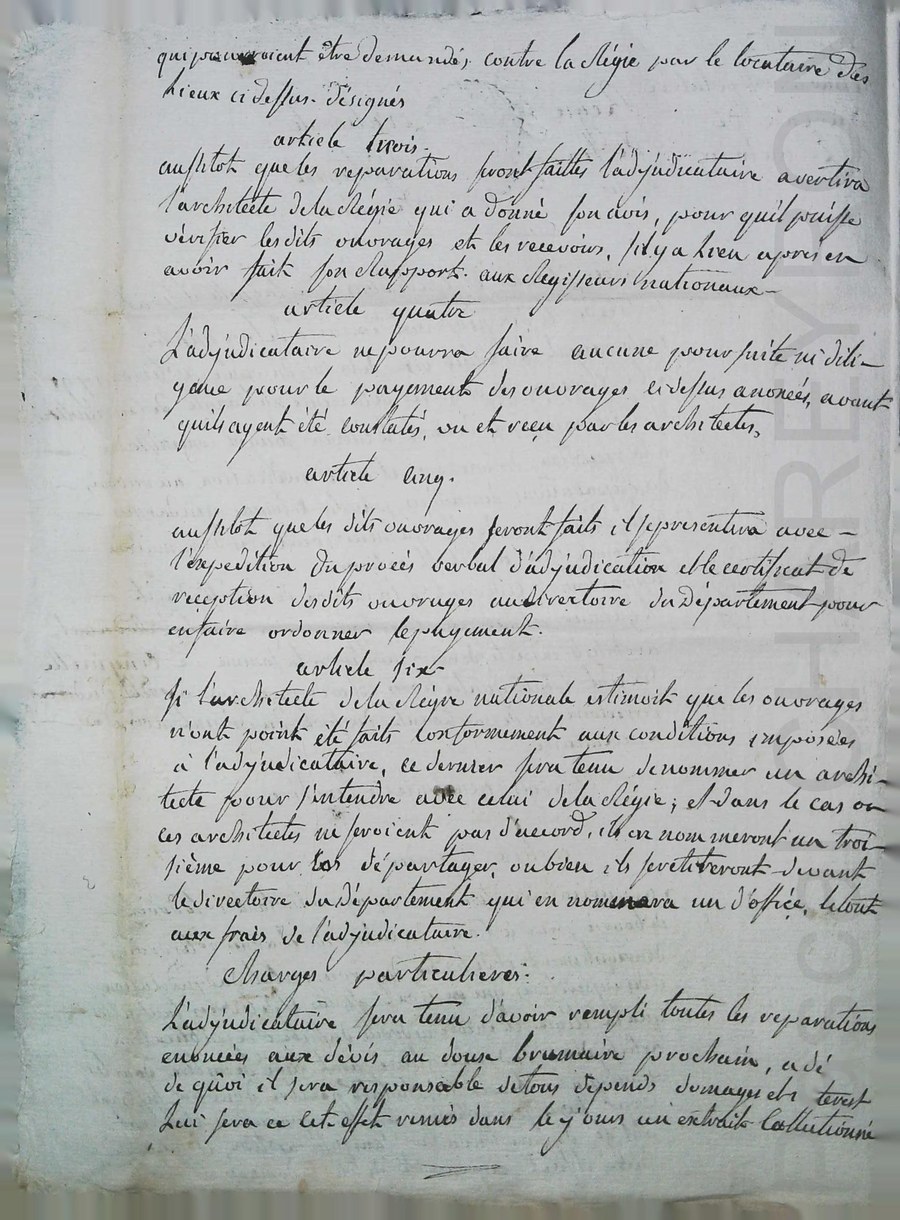 qui pouvroient être demandés, contre la Régie par le locataire des
Lieux ci dessus désignés
article trois.
aussitot que les reparations seront faittes l'adjudicataire avertira
l'architecte de la Régie qui a donné son avis, pour quil puisse
vérifier les dits ouvrages et les recevoirs, s'il y a Lieu apres en
avoir fait son Rapport. aux Régisseurs nationaux-
article quatre
L'adjudicataire ne pourra faire aucune poursuite ni dili-
gence pour le payement des ouvrages ci dessus anoncés, avant
quils ayent été constatés, vu et reçu par les architectes,
article cinq.
aussitot que les dits ouvrages seront faits il se presentera avec -
l'expedition du procés verbal d'adjudication et le certificat de
reception desdits ouvrages au directoire du Département pour
en faire ordonner le payement.
article six
Si l'architecte de la Régie nationale estimoit que les ouvrages
n'ont point été faits conformement aux conditions imposées
à l'adjudicataire, ce dernier sera tenu de nommer un archi-
tecte pour s'entendre avec celui de la Régie; et dans le cas ou
ces architectes ne seroient pas d'accord, ils en nommeront un troi-
sième pour les départager, ou bien ils se retireront devant
le directoire du Département qui en nommera un d'office, le tout
aux frais de l'adjudicataire.
Charges particulieres:
L'adjudicataire sera tenu d'avoir rempli toutes les reparations
enoncées aux dévis au douse brumaire prochain, a dé
de quoi il sera responsable de tous dépends domages et
Lui sera a cet effet remis dans le jours un extrait Collutionné